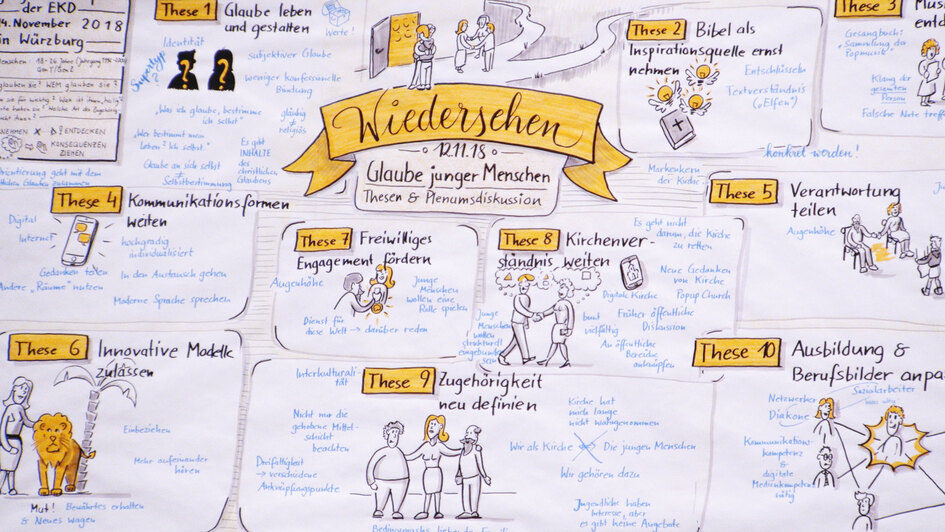 der EKD
4. November 2018
in Würzburg
NEHMEN
ENTDECKEN
KONSEQUENZEN
ZIEHEN
These 1
Glaube leben
und gestalten
Werte!
Identität
Supertyp?
subjektiver Glaube
weniger konfessionelle
Bindung
„Was ich glaube, bestimme
ich selbst“
gläubig
≠
religiös
„Wer bestimmt mein
Leben? Ich selbst.“
Es gibt
INHALTE
des
christlichen
Glaubens
Glaube an sich selbst
≠
Selbstbestimmung
Wiedersehen
12.11.18
Glaube junger Menschen
Thesen & Plenumsdiskussion
These 2
Bibel als
Inspirationsquelle ernst
nehmen
Entschlüsseln
Textverständnis
("Elfen")
konkret werden!
Markenkern
der Kirche
These 3
Gesangbuch:
"Sammlung der
Popmusik"
Klang der
gesamten
Person
Falsche Note
These 4
Kommunikationsformen
weiten
Digital
Internet
hochgradig
individualisiert
Gedanken teilen
In den Austausch gehen
Andere „Räume“ nutzen
Moderne Sprache sprechen
These 5
Verantwortung
teilen
Augenhöhe
These 7
Freiwilliges
Engagement fördern
Augenhöhe
Junge
Menschen
wollen eine
Rolle spielen
Dienst für
diese Welt → darüber reden
These 8
Kirchenver-
ständnis weiten
Es geht nicht
darum, die Kirche
zu retten
Digitale Kirche
Neue Gedanken
von Kirche
Popup Church
Junge
Menschen
wollen
strukturell
eingebunden
sein
bunt
vielfältig
Früher öffentliche
Diskussion
An öffentliche
Bereiche
anknüpfen
These 6
Innovative Modelle
zulassen
Einbeziehen
Mehr aufeinander
hören
Mut! Bewährtes erhalten
& Neues wagen
These 9
Zugehörigkeit
neu definien
Interkulturali-
tät
Nicht nur die
gehobene Mittel-
schicht
beachten
Dreifaltigkeit
→ verschiedene
Anknüpfungspunkte
Kirche hat
noch lange
nicht wahrgenommen
Wir als Kirche
Die jungen Menschen
Wir gehören dazu
Jugendliche haben
Interesse, aber
es gibt keine Angebote
These 10
Ausbildung &
Berufsbilder anpa
Netzwerker
Sozialarbeiter
Diakone
Kommunikations-
kompetenz
&
digitale
Medienkompetenz
nötig